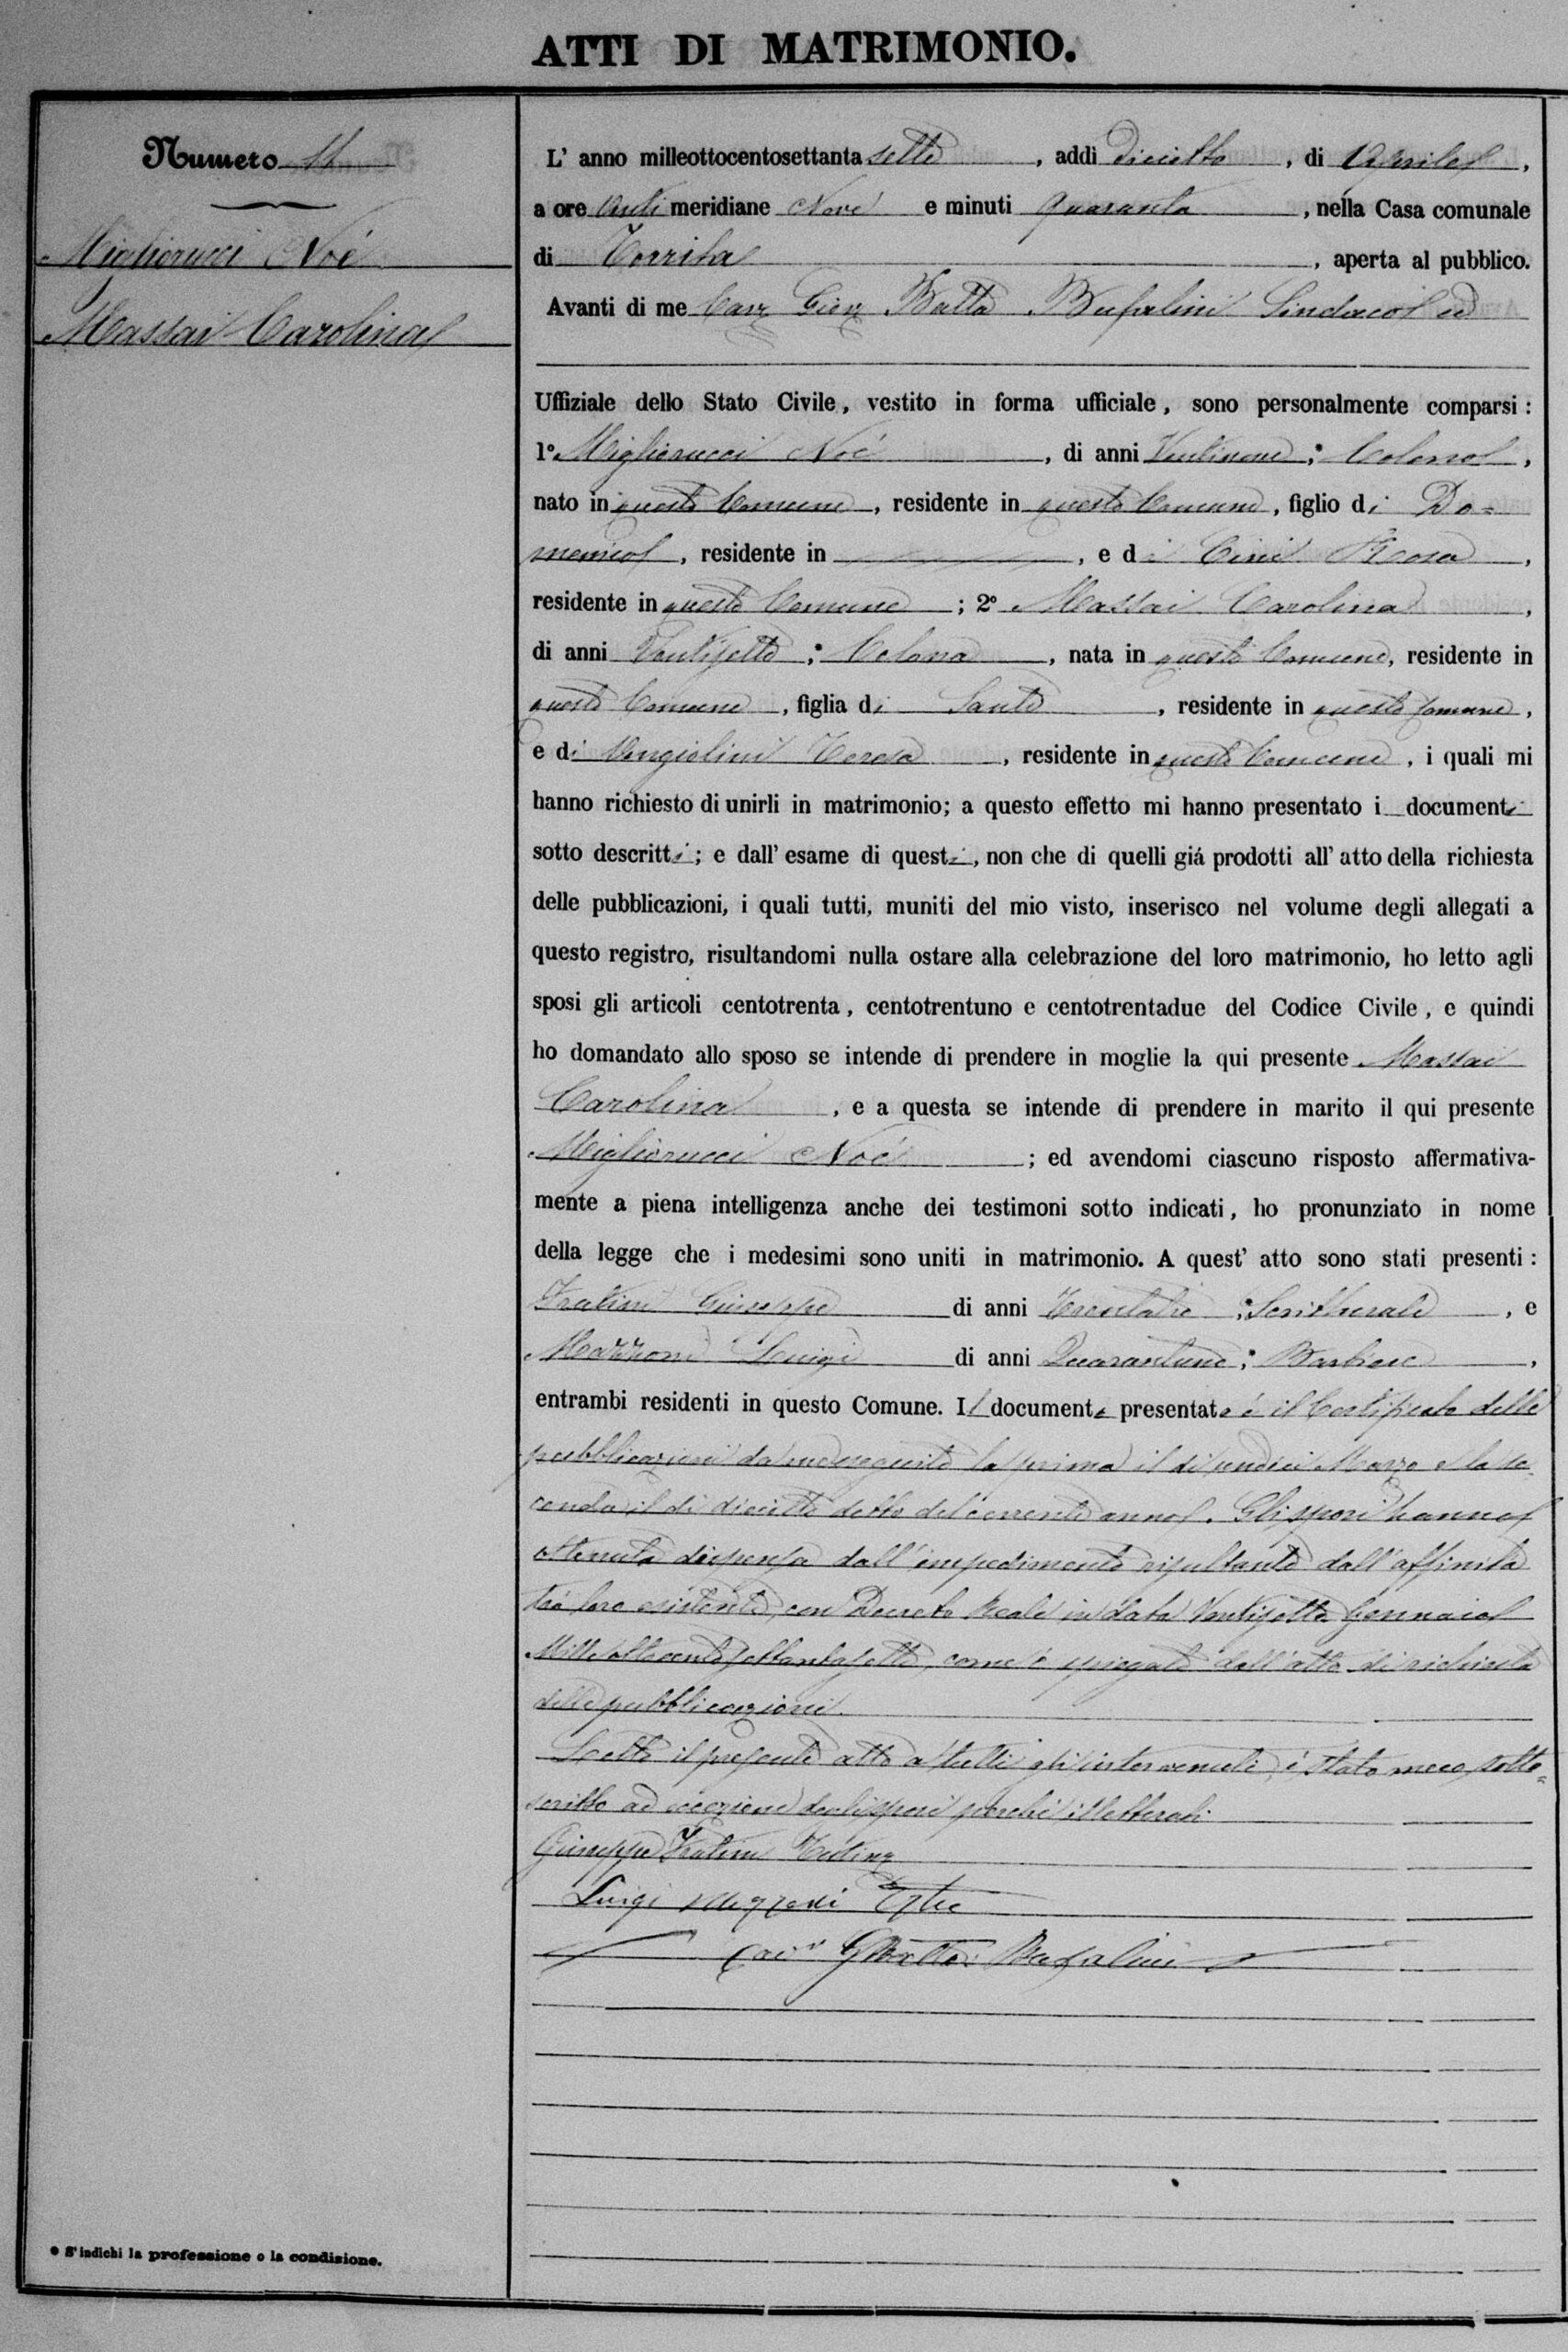 ATTI DI MATRIMONIO.
Numero 11
Migliorucci Noé
Massai Carolina
L' anno milleottocentosettanta sette, addì dieciotto, di Aprile,
a ore Anti meridiane Nove e minuti Quaranta, nella Casa comunale
di Torrita, aperta al pubblico.
Avanti di me Cav Giov Batta Bufalini Sindaco ed
Uffiziale dello Stato Civile, vestito in forma ufficiale, sono personalmente comparsi:
1º Migliorucci Noé, di anni Ventinove; Colono,
nato in questo Comune, residente in questo Comune, figlio di Do=
menico, residente in, e di Cini Rosa,
residente in questo Comune; 2º Massai Carolina,
di anni Ventisette; Colona, nata in questo Comune, residente in
questo Comune, figlia di Sante, residente in questo Comune,
e di Angiolini Teresa, residente in questo Comune, i quali mi
hanno richiesto di unirli in matrimonio; a questo effetto mi hanno presentato i documenti
sotto descritti; e dall' esame di questi, non che di quelli giá prodotti all' atto della richiesta
delle pubblicazioni, i quali tutti, muniti del mio visto, inserisco nel volume degli allegati a
questo registro, risultandomi nulla ostare alla celebrazione del loro matrimonio, ho letto agli
sposi gli articoli centotrenta, centotrentuno e centotrentadue del Codice Civile, e quindi
ho domandato allo sposo se intende di prendere in moglie la qui presente Massai
Carolina, e a questa se intende di prendere in marito il qui presente
Migliorucci Noé; ed avendomi ciascuno risposto affermativa-
mente a piena intelligenza anche dei testimoni sotto indicati, ho pronunziato in nome
della legge che i medesimi sono uniti in matrimonio. A quest' atto sono stati presenti:
Fratini Giuseppe di anni Trentatre; Scritturale, e
Mazzoni Luigi di anni Quarantuno; Barbiere,
entrambi residenti in questo Comune. Il documento presentato é il Certificato delle
pubblicazioni da me eseguite la prima il dì undici Marzo e la se
conda il dì dieciotto detto del corrente anno. Gli sposi hanno
ottenuta dispensa dall' impedimento risultante dall' affinità
tra loro esistente, con Decreto Reale in data Ventisette Gennaio
Milleottocentosettantasette, come é spiegato dall' atto di richiesta
delle pubblicazioni.
Letto il presente atto a tutti gli intervenuti, é stato meco sotto=
scritto ad eccezione degli sposi perché illetterati
Giuseppe Fratini Testimº
Luigi Mazzoni Testº
Cavr GBatta Bufalini
* S'indichi la professione o la condizione.